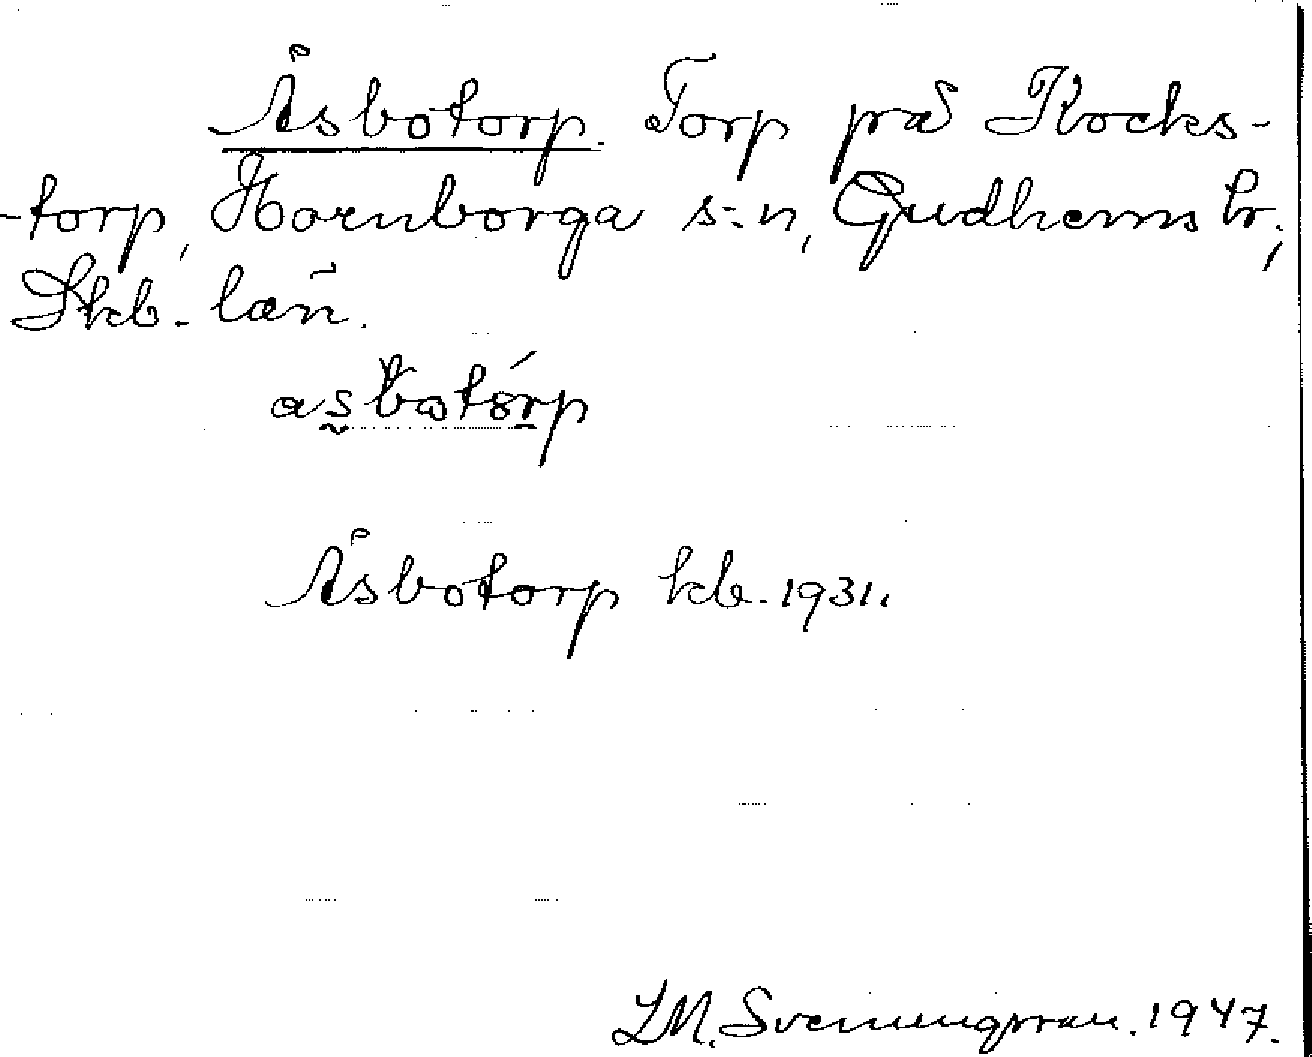 Åsbotorp. Torp på Kocks-
-torp, Hornborga s:n, Gudhems hr.,
Skb. län.
Åsbotorp kb. 1931.
LM. Svenungsson. 1947.